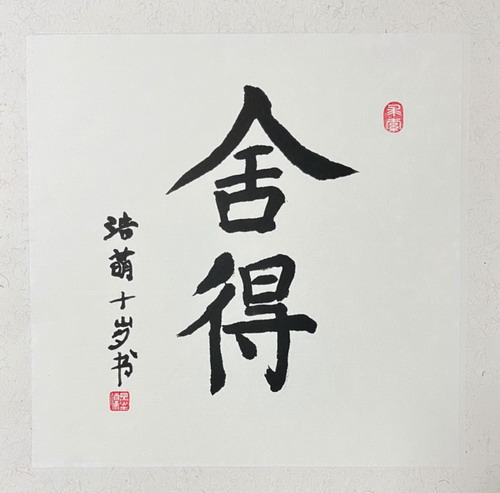 舍得
浩萌十岁书